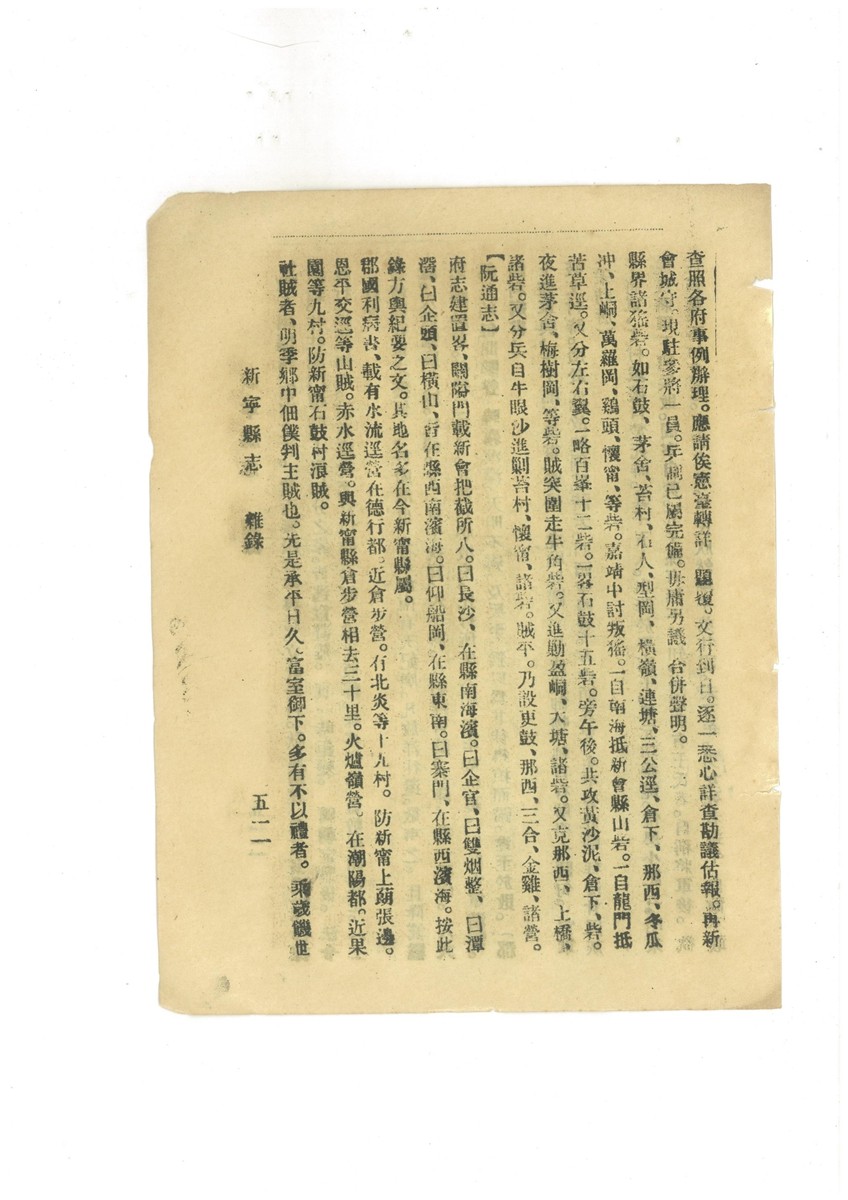 查照各府事例辦理。應請俟憲臺轉詳　題復。文行到日。逐一悉心詳查勘議估報。再新
會城守。現駐參將一員。兵糈已屬完備。毋庸另議　合併聲明。
縣界諸猺砦。如石鼓、茅舍、苔村、石人、型岡、橫嶺、連塘、三公逕、倉下、那西、冬瓜
冲、上峒、萬羅岡、鷄頭、懷甯、等砦。嘉靖中討叛猺。一自南海抵新會縣山砦。一自龍門抵
苦草逕。又分左右翼。一略百峯十二砦。一畧石鼓十五砦。旁午後。共攻黃沙泥、倉下、砦。
夜進茅舍、梅樹岡、等砦。賊突圍走牛角砦。又進勦盈峒、大塘、諸砦。又克那西、上橋、
諸砦。又分兵自牛眼沙進剿苔村、懷甯、諸砦。賊平。乃設更鼓、那西、三合、金雞、諸營。
【阮通志】
府志建置畧、關隘門載新會把截所八。曰長沙、在縣南海濱。曰企官、曰雙烟整、曰潭
滘、曰企頭、曰橫山、皆在縣西南濱海。曰仰船岡、在縣東南。曰寨門、在縣西濱海。按此
錄方輿紀要之文。其地名多在今新甯縣屬。
郡國利病書、載有水流逕營在德行都。近倉步營。有北炎等十九村。防新甯上蓢張邊。
恩平交逕等山賊。赤水逕營。與新甯縣倉步營相去三十里。火爐嶺營。在潮陽都。近果
園等九村。防新甯石鼓村浪賊。
社賊者、明季鄉中佃僕判主賊也。先是承平日久、富室御下。多有不以禮者。乘歲饑世
新寧縣志　雜錄
五一一